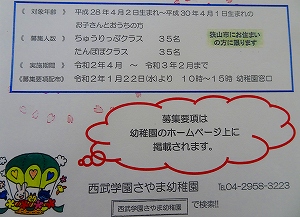 《 対象年齢 》 平成28年4月2日生まれ～平成30年4月1日生まれの
お子さんとおうちの方
《 募集人数 》 ちゅうりっぷクラス 35名
たんぽぽクラス 35名
狭山市にお住まい
の方に限ります
《 実施期間 》 令和2年4月 ～ 令和3年2月まで
《募集要項配布》 令和2年1月22日(水)より 10時～15時 幼稚園窓口
募集要項は
幼稚園のホームページ上に
掲載されます。
西武学園さやま幼稚園 TEL04-2958-3223
西武学園さやま幼稚園 で検索!!